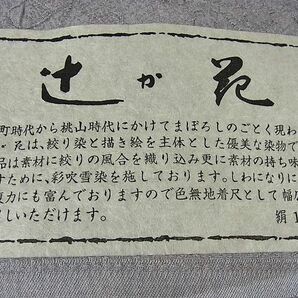 辻が花
町時代から桃山時代にかけてまぼろしのごとく現わ
花は、絞り染と描き絵を主体とした優美な染物で
品は素材に絞りの風合を織り込み更に素材の持ち味
すために、彩吹雪染を施しております。しわになりに
復力にも富んでおりますので色無地着尺として幅広
しいただけます。
絹1